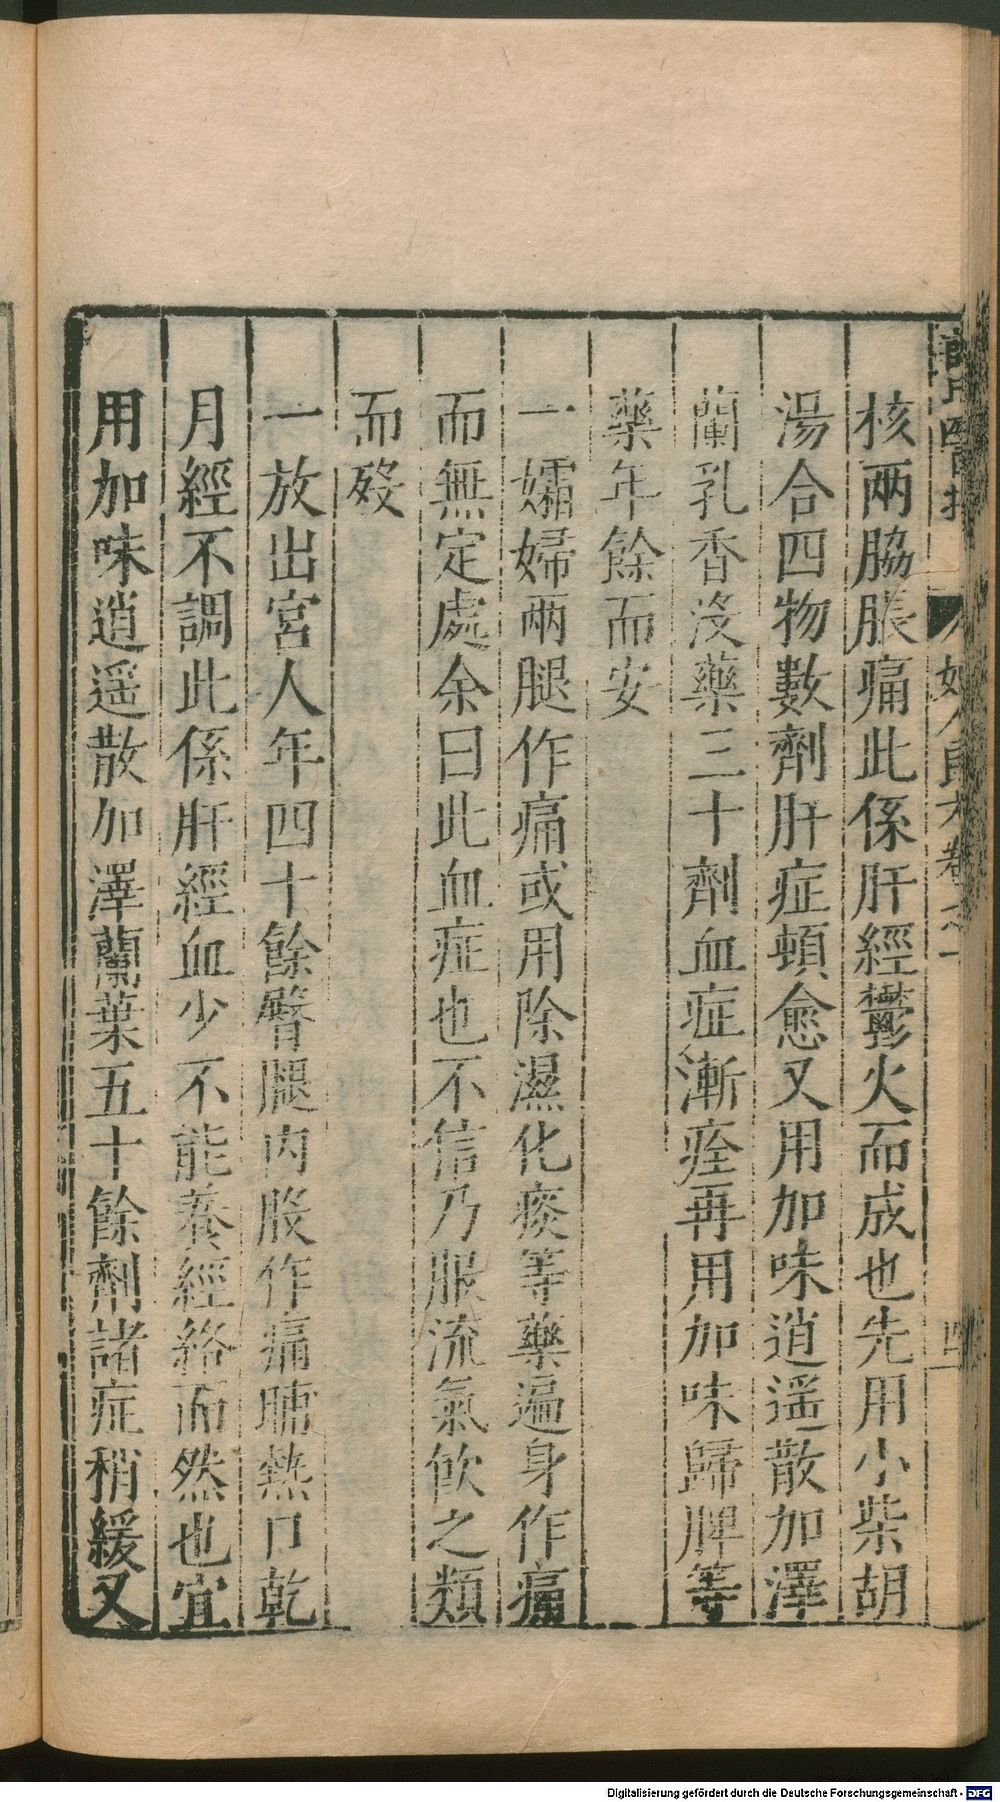 核兩脇脹痛此係肝經鬱火而成也先用小柴胡
湯合四物數劑肝症頓愈又用加味逍遥散加澤
蘭乳香没藥三十劑血症漸痊再用加味歸脾等
藥年餘而安
一孀婦兩腿作痛或用除濕化痰等藥遍身作痛
而無定處余曰此血症也不信乃服流氣飲之類
而歿
一放出宮人年四十餘臀腿内股作痛晡熱口乾
月經不調此係肝經血少不能養經絡而然也宜
用加味逍遥散加澤蘭葉五十餘劑諸症稍緩又
Digitalisierung gefördert durch die Deutsche Forschungsgemeinschaft - DFG